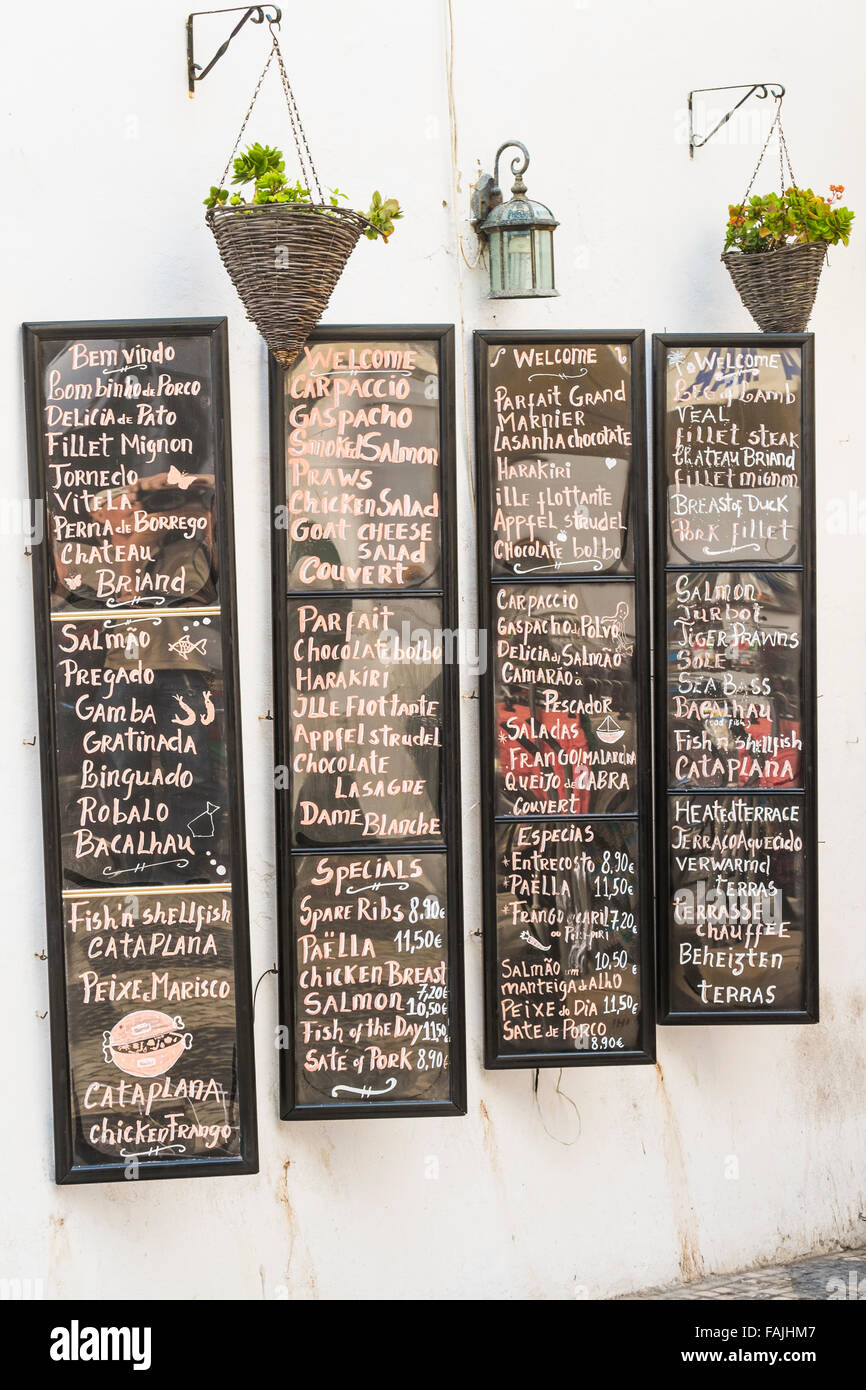 Bem vindo
Lombinho de Porco
Delicia de Pato
Fillet Mignon
Tornedo
Vitela
Perna de Borrego
Chateau
Briand
Salmão
Pregado
Gamba
Gratinada
Linguado
Robalo
Bacalhau
Fish'n shellfish
Cataplana
Peixe e Marisco
Cataplana
Chicken Frango
Welcome
Carpaccio
Gaspacho
Smoked Salmon
Praws
Chicken Salad
Goat Cheese
Salad
Couvert
Parfait
Chocolate bolbo
Harakiri
Ille Flottante
Appfel strudel
Chocolate
Lasagne
Dame Blanche
Specials
Spare Ribs 8,90€
Paëlla 11,50€
Chicken Breast
7,20€
Salmon 10,50€
Fish of the Day 11,50€
Saté of Pork 8,90€
Welcome
Parfait Grand
Marnier
Lasanha chocolate
Harakiri
ille flottante
Appfel strudel
Chocolate bolbo
Carpaccio
Gaspacho de Polvo
Delicia de Salmão
Camarão à
Pescador
Saladas
Frango/
Queijo de Cabra
Couvert
Especias
Entrecosto 8,90€
Paëlla 11,50€
Frango caril 7,20€
ou Piri-piri
Salmão em 10,50€
manteiga de Alho
Peixe do Dia 11,50€
Sate de Porco
8,90€
Welcome
Leg of Lamb
Veal
fillet steak
Chateau Briand
fillet mignon
Breast of Duck
Pork fillet
Salmon
Turbot
Tiger Prawns
Sole
Sea Bass
Bacalhau
(cod fish)
Fish'n shellfish
Cataplana
Heated terrace
Terraço Aquecido
verwarmd
terras
terrasse
chauffee
Beheizten
terras
alamy
Image ID: FAJHM7
www.alamy.com